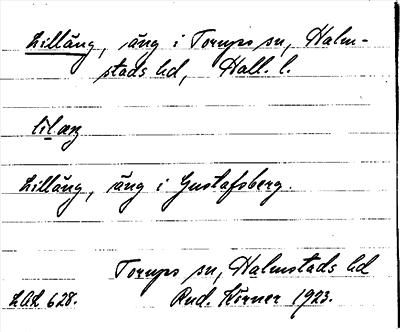 Lilläng, äng i Torups sn, Halm-
stads hd, Hall. l.
lilæŋ
Lilläng, äng i Gustafsberg.
Torups sn, Halmstads hd
LAL 628. Rud. Körner 1923.